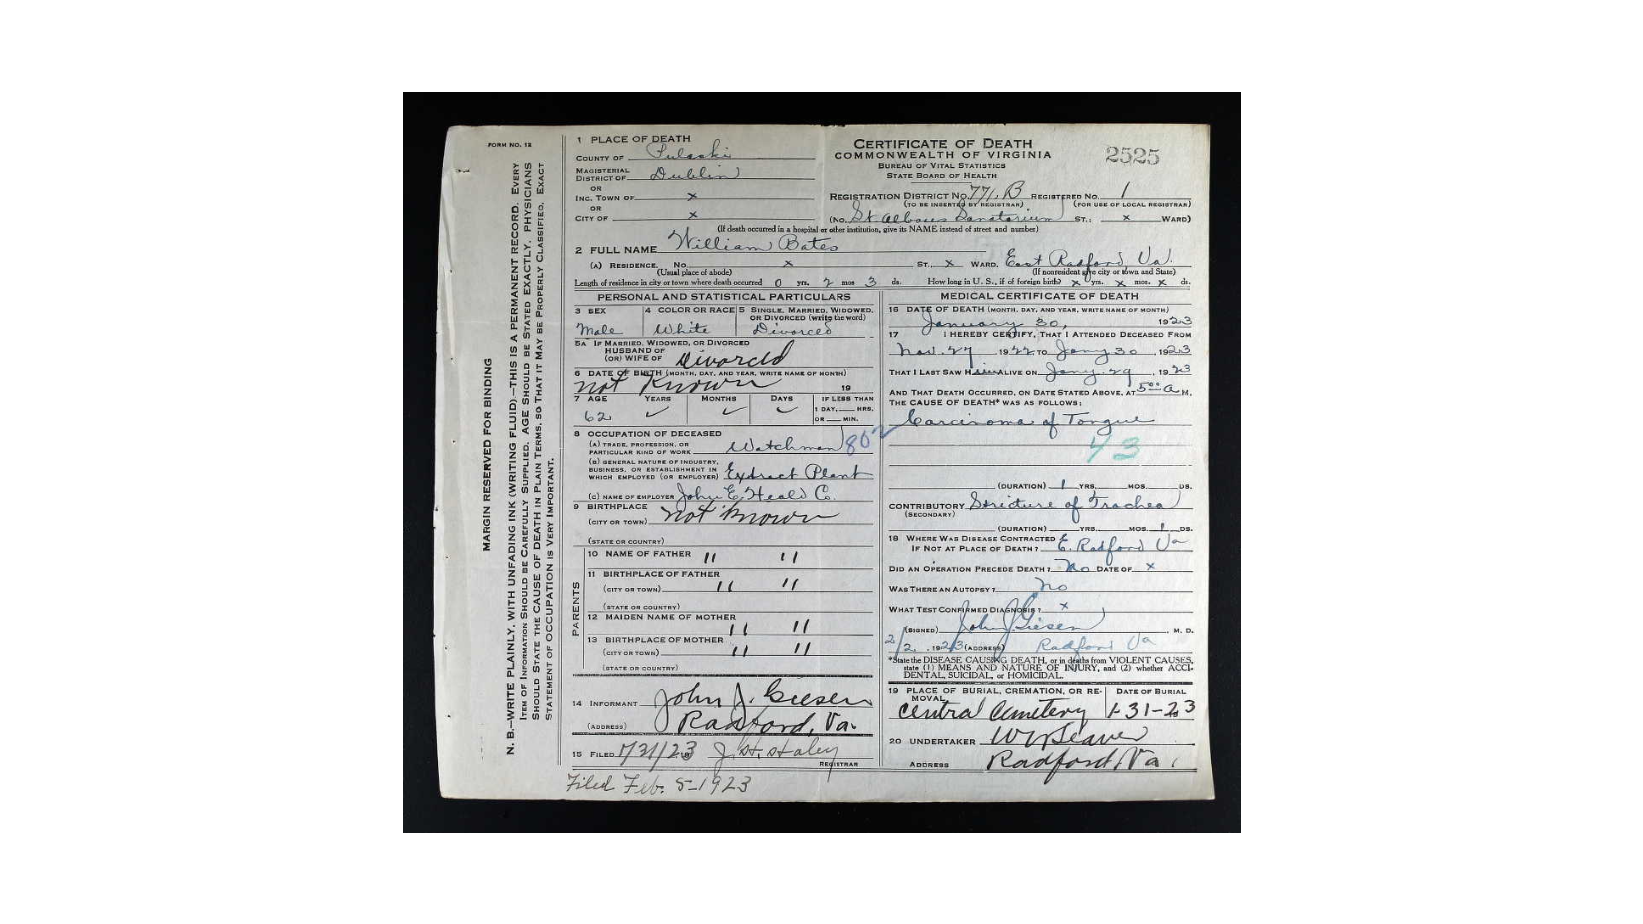 FORM NO. 12
MARGIN RESERVED FOR BINDING
N. B.—WRITE PLAINLY, WITH UNFADING INK (WRITING FLUID)—THIS IS A PERMANENT RECORD. EVERY
ITEM OF INFORMATION SHOULD BE CAREFULLY SUPPLIED. AGE SHOULD BE STATED EXACTLY. PHYSICIANS
SHOULD STATE THE CAUSE OF DEATH IN PLAIN TERMS, SO THAT IT MAY BE PROPERLY CLASSIFIED. EXACT
STATEMENT OF OCCUPATION IS VERY IMPORTANT.
1 PLACE OF DEATH
COUNTY OF Pulaski
MAGISTERIAL
DISTRICT OF Dublin
OR
INC. TOWN OF x
OR
CITY OF x
CERTIFICATE OF DEATH
COMMONWEALTH OF VIRGINIA
BUREAU OF VITAL STATISTICS
STATE BOARD OF HEALTH
2525
REGISTRATION DISTRICT NO. 771, B REGISTERED NO. 1
(TO BE INSERTED BY REGISTRAR) (FOR USE OF LOCAL REGISTRAR)
(No. St Albans Sanatorium ST.; x WARD)
(If death occurred in a hospital or other institution, give its NAME instead of street and number)
2 FULL NAME William Bates
(A) RESIDENCE. No. x ST. x WARD. East Radford, Va.
(Usual place of abode) (If nonresident give city or town and State)
Length of residence in city or town where death occurred 0 yrs. 2 mos 3 ds. How long in U. S., if of foreign birth? x yrs. x mos. x ds.
PERSONAL AND STATISTICAL PARTICULARS
3 SEX Male
4 COLOR OR RACE White
5 SINGLE, MARRIED, WIDOWED,
OR DIVORCED (write the word)
Divorced
5A IF MARRIED, WIDOWED, OR DIVORCED
HUSBAND OF
(OR) WIFE OF Divorced
6 DATE OF BIRTH (MONTH, DAY, AND YEAR, WRITE NAME OF MONTH)
not Known 19
7 AGE YEARS MONTHS DAYS IF LESS THAN
1 DAY, HRS.
OR MIN.
62
8 OCCUPATION OF DECEASED
(A) TRADE, PROFESSION, OR
PARTICULAR KIND OF WORK Watchman 802
(B) GENERAL NATURE OF INDUSTRY,
BUSINESS, OR ESTABLISHMENT IN
WHICH EMPLOYED (OR EMPLOYER) Extract Plant
(C) NAME OF EMPLOYER John E Heald Co.
9 BIRTHPLACE
(CITY OR TOWN) not Known
(STATE OR COUNTRY)
PARENTS
10 NAME OF FATHER " "
11 BIRTHPLACE OF FATHER
(CITY OR TOWN) " "
(STATE OR COUNTRY)
12 MAIDEN NAME OF MOTHER " "
13 BIRTHPLACE OF MOTHER
(CITY OR TOWN) " "
(STATE OR COUNTRY)
14 INFORMANT John J. Giesen
(ADDRESS) Radford, Va.
15 FILED 1/31/23 J. H. Staley
REGISTRAR
Filed Feb. 5-1923
MEDICAL CERTIFICATE OF DEATH
16 DATE OF DEATH (MONTH, DAY, AND YEAR, WRITE NAME OF MONTH)
January 30, 1923
17 I HEREBY CERTIFY, THAT I ATTENDED DECEASED FROM
Nov. 27 1922 TO Jany 30, 1923
THAT I LAST SAW Him ALIVE ON Jany. 29, 1923
AND THAT DEATH OCCURRED, ON DATE STATED ABOVE, AT 5:00 A M.
THE CAUSE OF DEATH* WAS AS FOLLOWS:
Carcinoma of Tongue
43
(DURATION) 1 YRS. MOS. DS.
CONTRIBUTORY Stricture of Trachea
(SECONDARY)
(DURATION) YRS. MOS. 1 DS.
18 WHERE WAS DISEASE CONTRACTED
IF NOT AT PLACE OF DEATH? E. Radford Va
DID AN OPERATION PRECEDE DEATH? No DATE OF x
WAS THERE AN AUTOPSY? No
WHAT TEST CONFIRMED DIAGNOSIS? x
(SIGNED) John J Giesen, M. D.
2/2, 1923 (ADDRESS) Radford Va
*State the DISEASE CAUSING DEATH, or in deaths from VIOLENT CAUSES,
state (1) MEANS AND NATURE OF INJURY, and (2) whether ACCI-
DENTAL, SUICIDAL, or HOMICIDAL.
19 PLACE OF BURIAL, CREMATION, OR RE-
MOVAL DATE OF BURIAL
Central Cemetery 1-31-23
20 UNDERTAKER Beaver
ADDRESS Radford, Va.